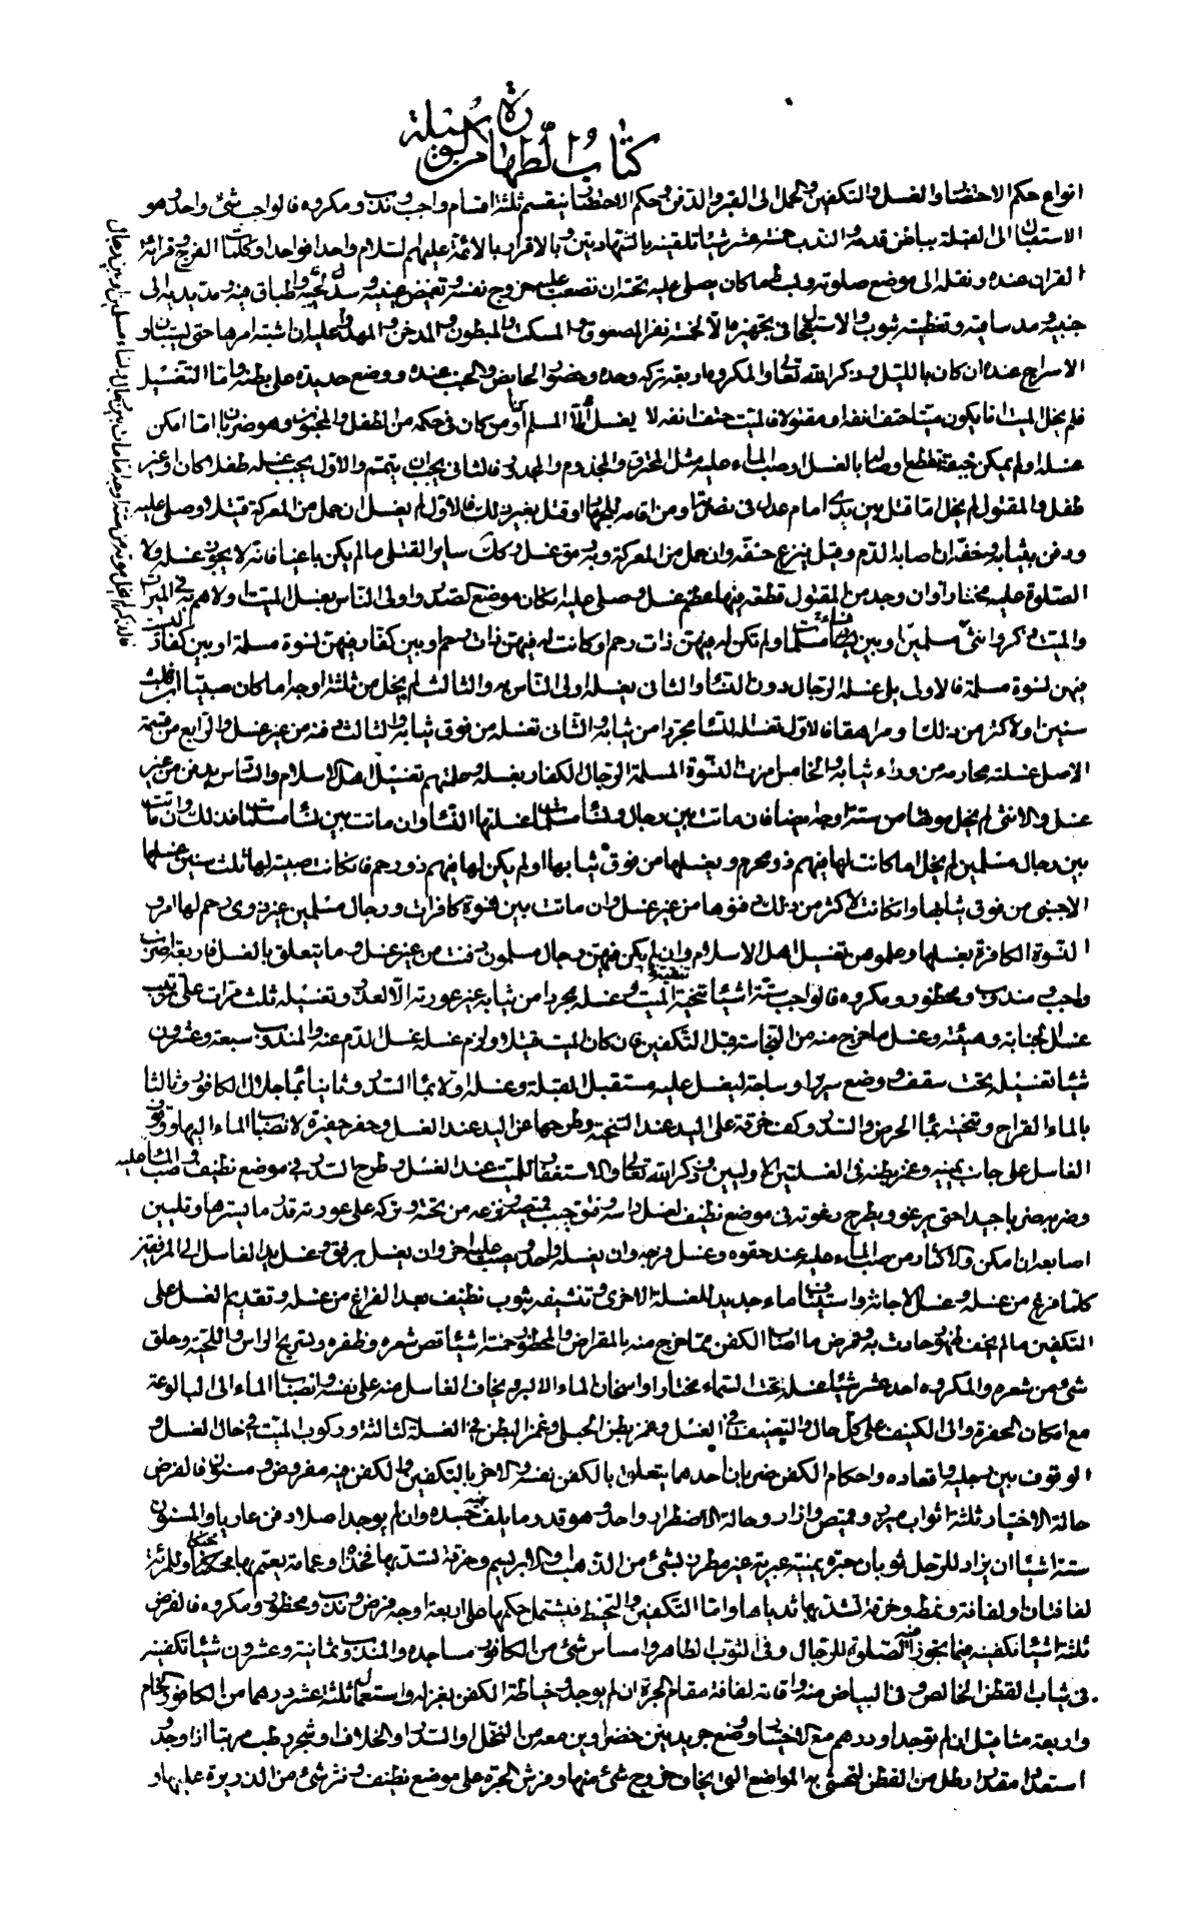 كتاب الطهارة من الوسيلة
انواع حكم الاحتضار والغسل والتكفين والحمل الى القبر والدفن وحكم الاحتضار ينقسم ثلثة اقسام واجب وندب ومكروه فالواجب شئ واحد وهو
الاستقبال الى القبلة بباطن قدميه والندب خمسة عشر شيئا تلقينه بالشهادتين وبالاقرار بالائمة عليهم السلام واحدا فواحدا وكلمات الفرج وقرائة
القران عنده ونقله الى موضع صلوته وبسط ما كان يصلى عليه تحته ان تصعب عليه خروج نفسه وتغميض عينيه وسد لحييه واطباق فيه ومد يديه الى
جنبيه ومد ساقيه وتغطيته بثوب والاستعجال فى تجهيزه الا لخمسة نفر المصعوق والمسكت والمبطون والمدخن والمهدوم عليه ان اشتبه امرها حتى يستبان و
الاسراج عنده ان كان بالليل وذكر الله تعالى والمكروه اربعة تركه وحده وحضور الحايض والجنب عنده ووضع حديدة على بطنه واما التغسيل
فلم يخل الميت اما يكون ميتا حتف انفه او مقتولا فالميت حتف انفه لا يغسل الا المسلم او من كان فى حكمه من الطفل والمجنون وهو ضربان اما امكن
غسله او لم يمكن خيفة تقطع اوصاله بالغسل او صب الماء عليه مثل المحترق والمجذوم والمجدور فالثانى يجب ان يتيمم والاول يجب غسله طفلا كان او غير
طفل والمقتول لم يخل اما قتل بين يدى امام عدل فى نصرته او من اقامه لها او قتل بغير ذلك فالاول لم يغسل ان حمل من المعركة قتيلا وصلى عليه
ودفن بثيابه وخفه ان اصابه الدم وقيل ينزع خفه وان حمل من المعركة وبه رمق غسل وكذلك ساير القتلى ما لم يكن باغيا فانه لا يجوز غسله ولا
الصلوة عليه مختارا وان وجد من المقتول قطعة فيها عظم غسل وصلى عليه ان كان موضع الصدر واولى الناس بغسل الميت اولاهم به فى الميراث
والميت ذكر وانثى
فيهن نسوة مسلمة فالاول يلى غسله الرجال دون النساء والثانى يغسله اولى الناس به والثالث لم يخل من ثلثة اوجه اما كان صبيا ابن ثلث
سنين او لاكثر من ذلك او مراهقا فالاول تغسله النساء مجردا من ثيابه والثانى تغسله من فوق ثيابه والثالث دفنه من غير غسل والرابع من قسمة
الاصل غسلته محارمه من وراء ثيابه والخامس امرت النسوة المسلمة الرجال الكفار بغسله وعلمتهم تغسيل اهل الاسلام والسادس يدفن من غير
غسل والانثى لم يخل موتها من ستة اوجه ايضا فان ماتت بين رجال ونساء مسلمات غسلتها النساء وان ماتت بين نساء مسلمات فكذلك وان ماتت
بين رجال مسلمين لم يخل اما كانت لها فيهم ذو محرم ويغسلها من فوق ثيابها او لم يكن لها فيهم ذو رحم فان كانت صبية لها ثلث سنين غسلها
الاجنبى من فوق ثيابها وان كانت لاكثر من ذلك دفنوها من غير غسل وان ماتت بين نسوة كافرات ورجال مسلمين غير ذوى رحم لها امروا
النسوة الكافرة بغسلها وعلموهن تغسيل اهل الاسلام وان لم يكن فيهن رجال مسلمون دفنت من غير غسل وما يتعلق بالغسل فاربعة اضرب
واجب ومندوب ومحظور ومكروه فالواجب ستة اشياء تنجية الميت وغسله مجردا من ثيابه غير عورته الا لعذر وتغسيله ثلث مرات على ترتيب
غسل الجنابة وهيئته وغسل ما خرج منه من النجاسة قبل التكفين فان كان الميت قتيلا ولزم غسله غسل الدم عنه والمندوب سبعة وعشرون
شيئا تغسيله تحت سقف ووضع سرير او ساجة ليغسل عليه مستقبل القبلة وغسله اولا بماء السدر وثانيا بماء جلال الكافور وثالثا
بالماء القراح وتنجيته بماء الحرض والسدر وكف خرقة على اليد عند التنجية وطرحها عن اليد عند الغسل وحفر حفيرة لانصباب الماء اليها ووقوف
الغاسل على جانب يمينه وغمز بطنه فى الغسلتين الاوليين وذكر الله تعالى والاستغفار للميت عند الغسل وطرح السدر فى موضع نظيف وصب الماء عليه
وضربه ضربا جيدا حتى يرغو ويطرح رغوته فى موضع نظيف لغسل راسه وفتق جيب قميصه ونزعه من تحته وتركه على عورته قدر ما يسترها وتليين
اصابعه ان امكن والاكثار من صب الماء عليه عند حقوه وغسل فرجه وان يغسله واحد ويصب عليه اخر وان يغسل برفق وغسل يد الغاسل الى المرفقين
كلما فرغ من غسله وغسل الاجانة واستيناف ماء جديد للغسلة الاخرى وتنشيفه بثوب نظيف بعد الفراغ من غسله وتقديم الغسل على
التكفين ما لم يخف ظهور حادث به وقرض ما اصاب الكفن مما خرج منه بالمقراض والمحظور خمسة اشياء قص شعره وظفره وتسريح الراس واللحية وحلق
شئ من شعره والمكروه احد عشر شيئا غسله تحت السماء مختارا واسخان الماء الا لبرد يخاف الغاسل منه على نفسه وانصباب الماء الى البالوعة
مع امكان الحفرة والى الكنيف على كل حال والتعنيف فى الغسل وغمز بطن الحبلى وغمز البطن فى الغسلة الثالثة وركوب الميت فى حال الغسل و
الوقوف بين رجليه واقعاده واحكام الكفن ضربان احدهما يتعلق بالكفن نفسه والاخر بالتكفين والكفن فيه مفروض ومسنون فالفرض
حالة الاختيار ثلثة اثواب مئزر وقميص وازار وحالة الاضطرار واحد وهو قدر ما يلف جسده وان لم يوجد اصلا دفن عاريا والمسنون
ستة اشياء ان يزاد للرجل ثوبان حبرة يمنية عبرية غير مطرزة بشئ من الذهب والابريسم وخرقة لشد بها فخذاه وعمامة يعتم بها محنكا وللمرئة
لفافتان او لفافة ونمط وخرقة تشد بها ثدياها واما التكفين والتحنيط فيشتمل حكمها على اربعة اوجه فرض وندب ومحظور ومكروه فالفرض
ثلثة اشياء تكفينه فيما يجوز فيه الصلوة للرجال وفى الثوب الطاهر وامساس شئ من الكافور مساجده والمندوب ثمانية وعشرون شيئا تكفينه
فى ثياب القطن الخالص وفى البياض منه واقامة لفافة مقام الحبرة ان لم يوجد وخياطة الكفن بغزله واستعمال ثلثة عشر درهما من الكافور الخام
واربعة مثاقيل ان لم توجد او درهم مع الاختيار ووضع جريدتين خضراوين معه من النخل او السدر او الخلاف او شجر رطب مرتبا اذا وجد و
استعداد مقدار رطل من القطن لتحشى به المواضع التى يخاف خروج شئ منها وفرش الحبرة على موضع نظيف ونثر شئ من الذريرة عليها و